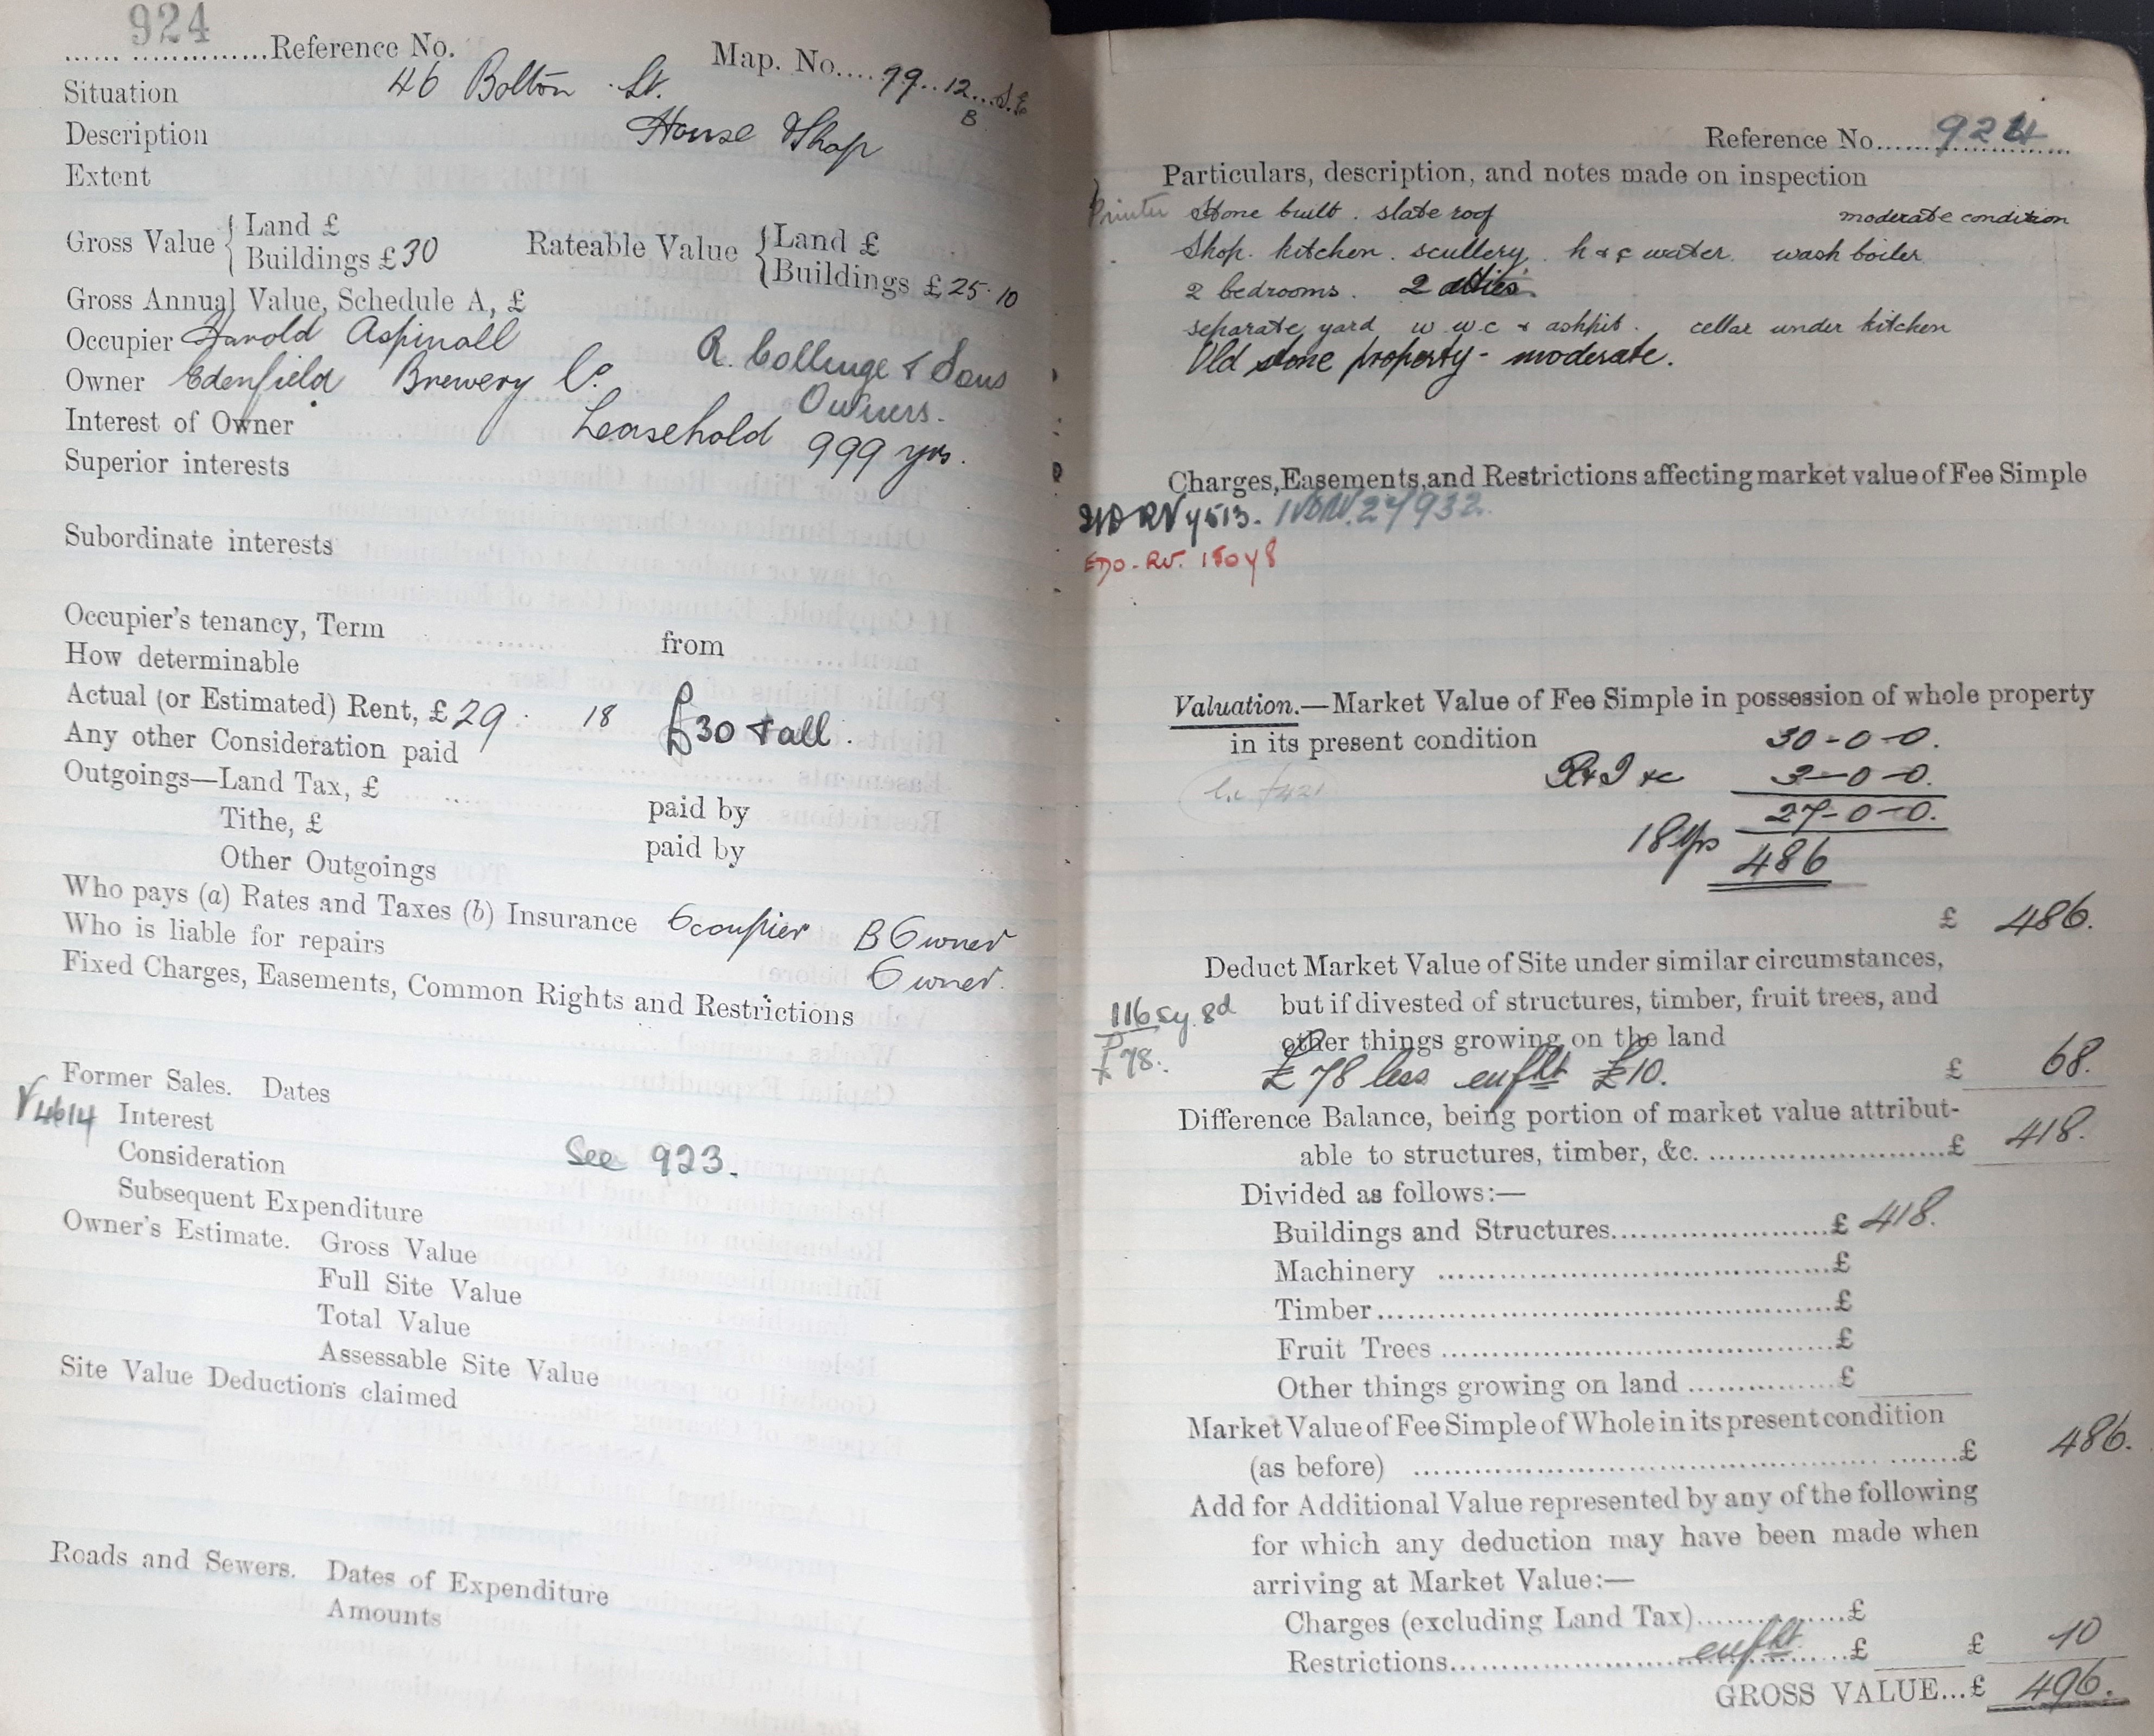 924
Reference No. Map. No. 99 12 S.E
B
Situation 46 Bolton St.
Description House & Shop
Extent
Gross Value { Land £
Buildings £ 30
Rateable Value { Land £
Buildings £ 25.10
Gross Annual Value, Schedule A, £
Occupier Harold Aspinall
Owner Edenfield Brewery Co R. Collinge & Sons
Owners.
Interest of Owner Leasehold 999 yrs.
Superior interests
Subordinate interests
Occupier's tenancy, Term from
How determinable
Actual (or Estimated) Rent, £ 29. 18 £30 + all.
Any other Consideration paid
Outgoings—Land Tax, £ paid by
Tithe, £ paid by
Other Outgoings
Who pays (a) Rates and Taxes (b) Insurance Occupier B Owner
Who is liable for repairs Owner.
Fixed Charges, Easements, Common Rights and Restrictions
Former Sales. Dates
4614 Interest
Consideration See 923.
Subsequent Expenditure
Owner's Estimate. Gross Value
Full Site Value
Total Value
Assessable Site Value
Site Value Deductions claimed
Roads and Sewers. Dates of Expenditure
Amounts
Reference No. 924
Particulars, description, and notes made on inspection
Printer Stone built. slate roof moderate condition
Shop. kitchen. scullery. h & c water. wash boiler
2 bedrooms. 2 attics.
separate yard w. w.c & ashpit. cellar under kitchen
Old stone property - moderate.
Charges, Easements, and Restrictions affecting market value of Fee Simple
27932.
Valuation.—Market Value of Fee Simple in possession of whole property
in its present condition 30-0-0.
R & I &c 3-0-0.
27-0-0.
18 yrs 486
£ 486.
Deduct Market Value of Site under similar circumstances,
but if divested of structures, timber, fruit trees, and
116 sy. 8d other things growing on the land
£78. £78 less enf lt £10. £ 68.
Difference Balance, being portion of market value attribut-
able to structures, timber, &c. £ 418.
Divided as follows:—
Buildings and Structures £ 418.
Machinery £
Timber £
Fruit Trees £
Other things growing on land £
Market Value of Fee Simple of Whole in its present condition
(as before) £ 486.
Add for Additional Value represented by any of the following
for which any deduction may have been made when
arriving at Market Value:—
Charges (excluding Land Tax) £
Restrictions £ £ 10
GROSS VALUE...£ 496.